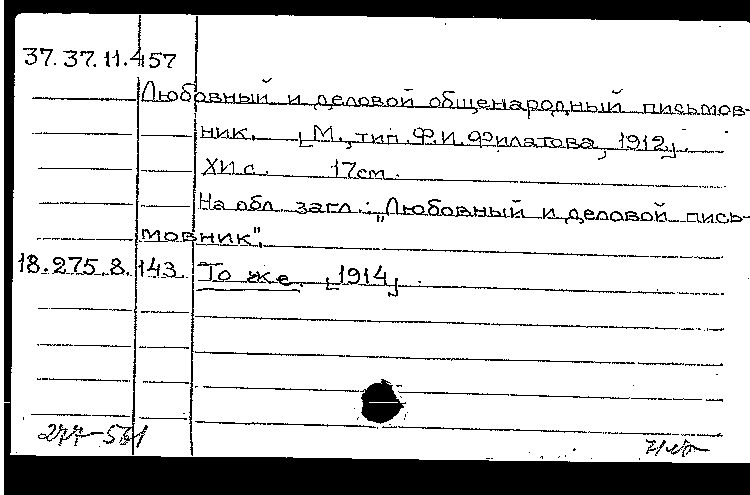 37.37.11.457
Любовный и деловой общенародный письмов-
ник. [М., тип. Ф.И. Филатова, 1912].
XII с. 17см.
На обл. загл.: „Любовный и деловой пись-
мовник".
18.275.8.143. То же. [1914].
277-561